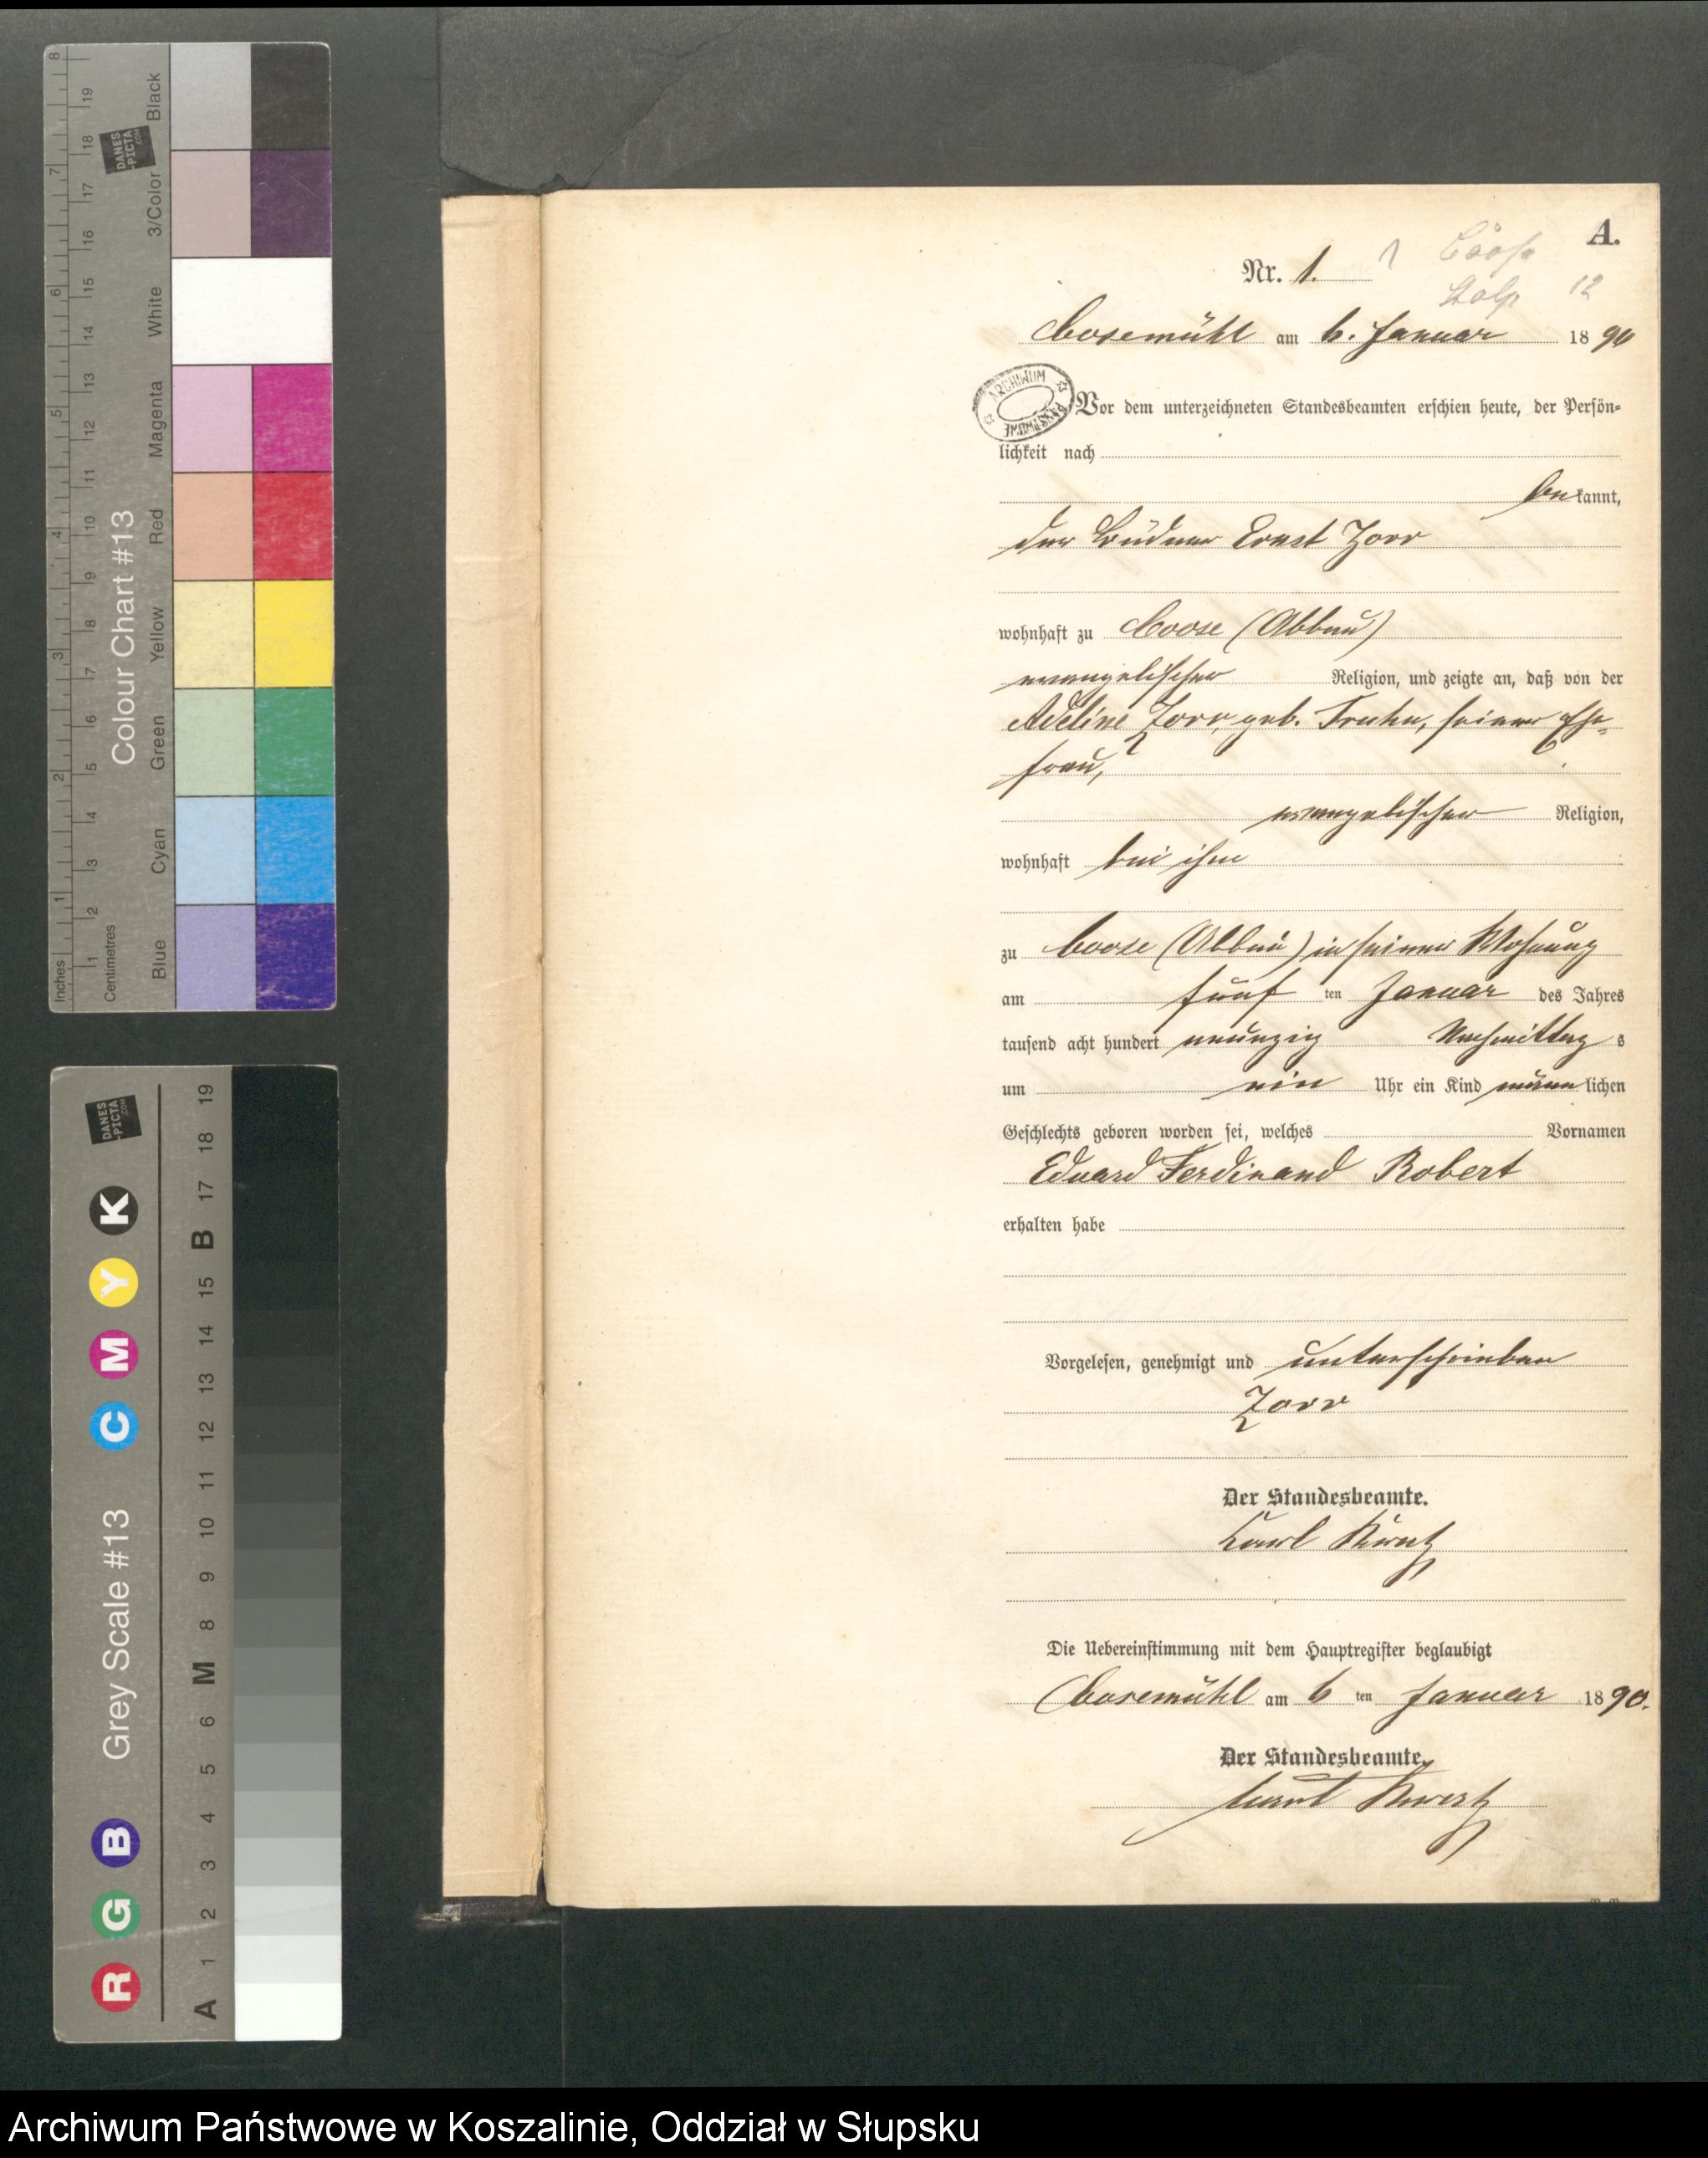 A.
Nr. 1.
Coose
Stolp 12
Cosemühl am 6. Januar 1890
ARCHIWUM
Vor dem unterzeichneten Standesbeamten erschien heute, der Persön-
lichkeit nach
bekannt,
der Büdner Ernst Zorr
wohnhaft zu Coose (Abbau)
evangelischer Religion, und zeigte an, daß von der
Adeline Zorr, geb. Truhn, seiner Ehe-
frau,
evangelischer Religion,
wohnhaft bei ihm
zu Coose (Abbau) in seiner Wohnung
am fünf ten Januar des Jahres
tausend acht hundert neunzig Nachmittags
um ein Uhr ein Kind männlichen
Geschlechts geboren worden sei, welches Vornamen
Eduard Ferdinand Robert
erhalten habe
Vorgelesen, genehmigt und unterschrieben
Zorr
Der Standesbeamte.
Die Uebereinstimmung mit dem Hauptregister beglaubigt
Cosemühl am 6 ten Januar 1890.
Der Standesbeamte.
Colour Chart #13
Blue Cyan Green Yellow Red Magenta White 3/Color Black
Inches 1 2 3 4 5 6 7 8
Centimetres 1 2 3 4 5 6 7 8 9 10 11 12 13 14 15 16 17 18 19
DANES
-PICTA
.COM
Grey Scale #13
R G B C M Y K
A 1 2 3 4 5 6 M 8 9 10 11 12 13 14 15 B 17 18 19
DANES
-PICTA
.COM
Archiwum Państwowe w Koszalinie, Oddział w Słupsku